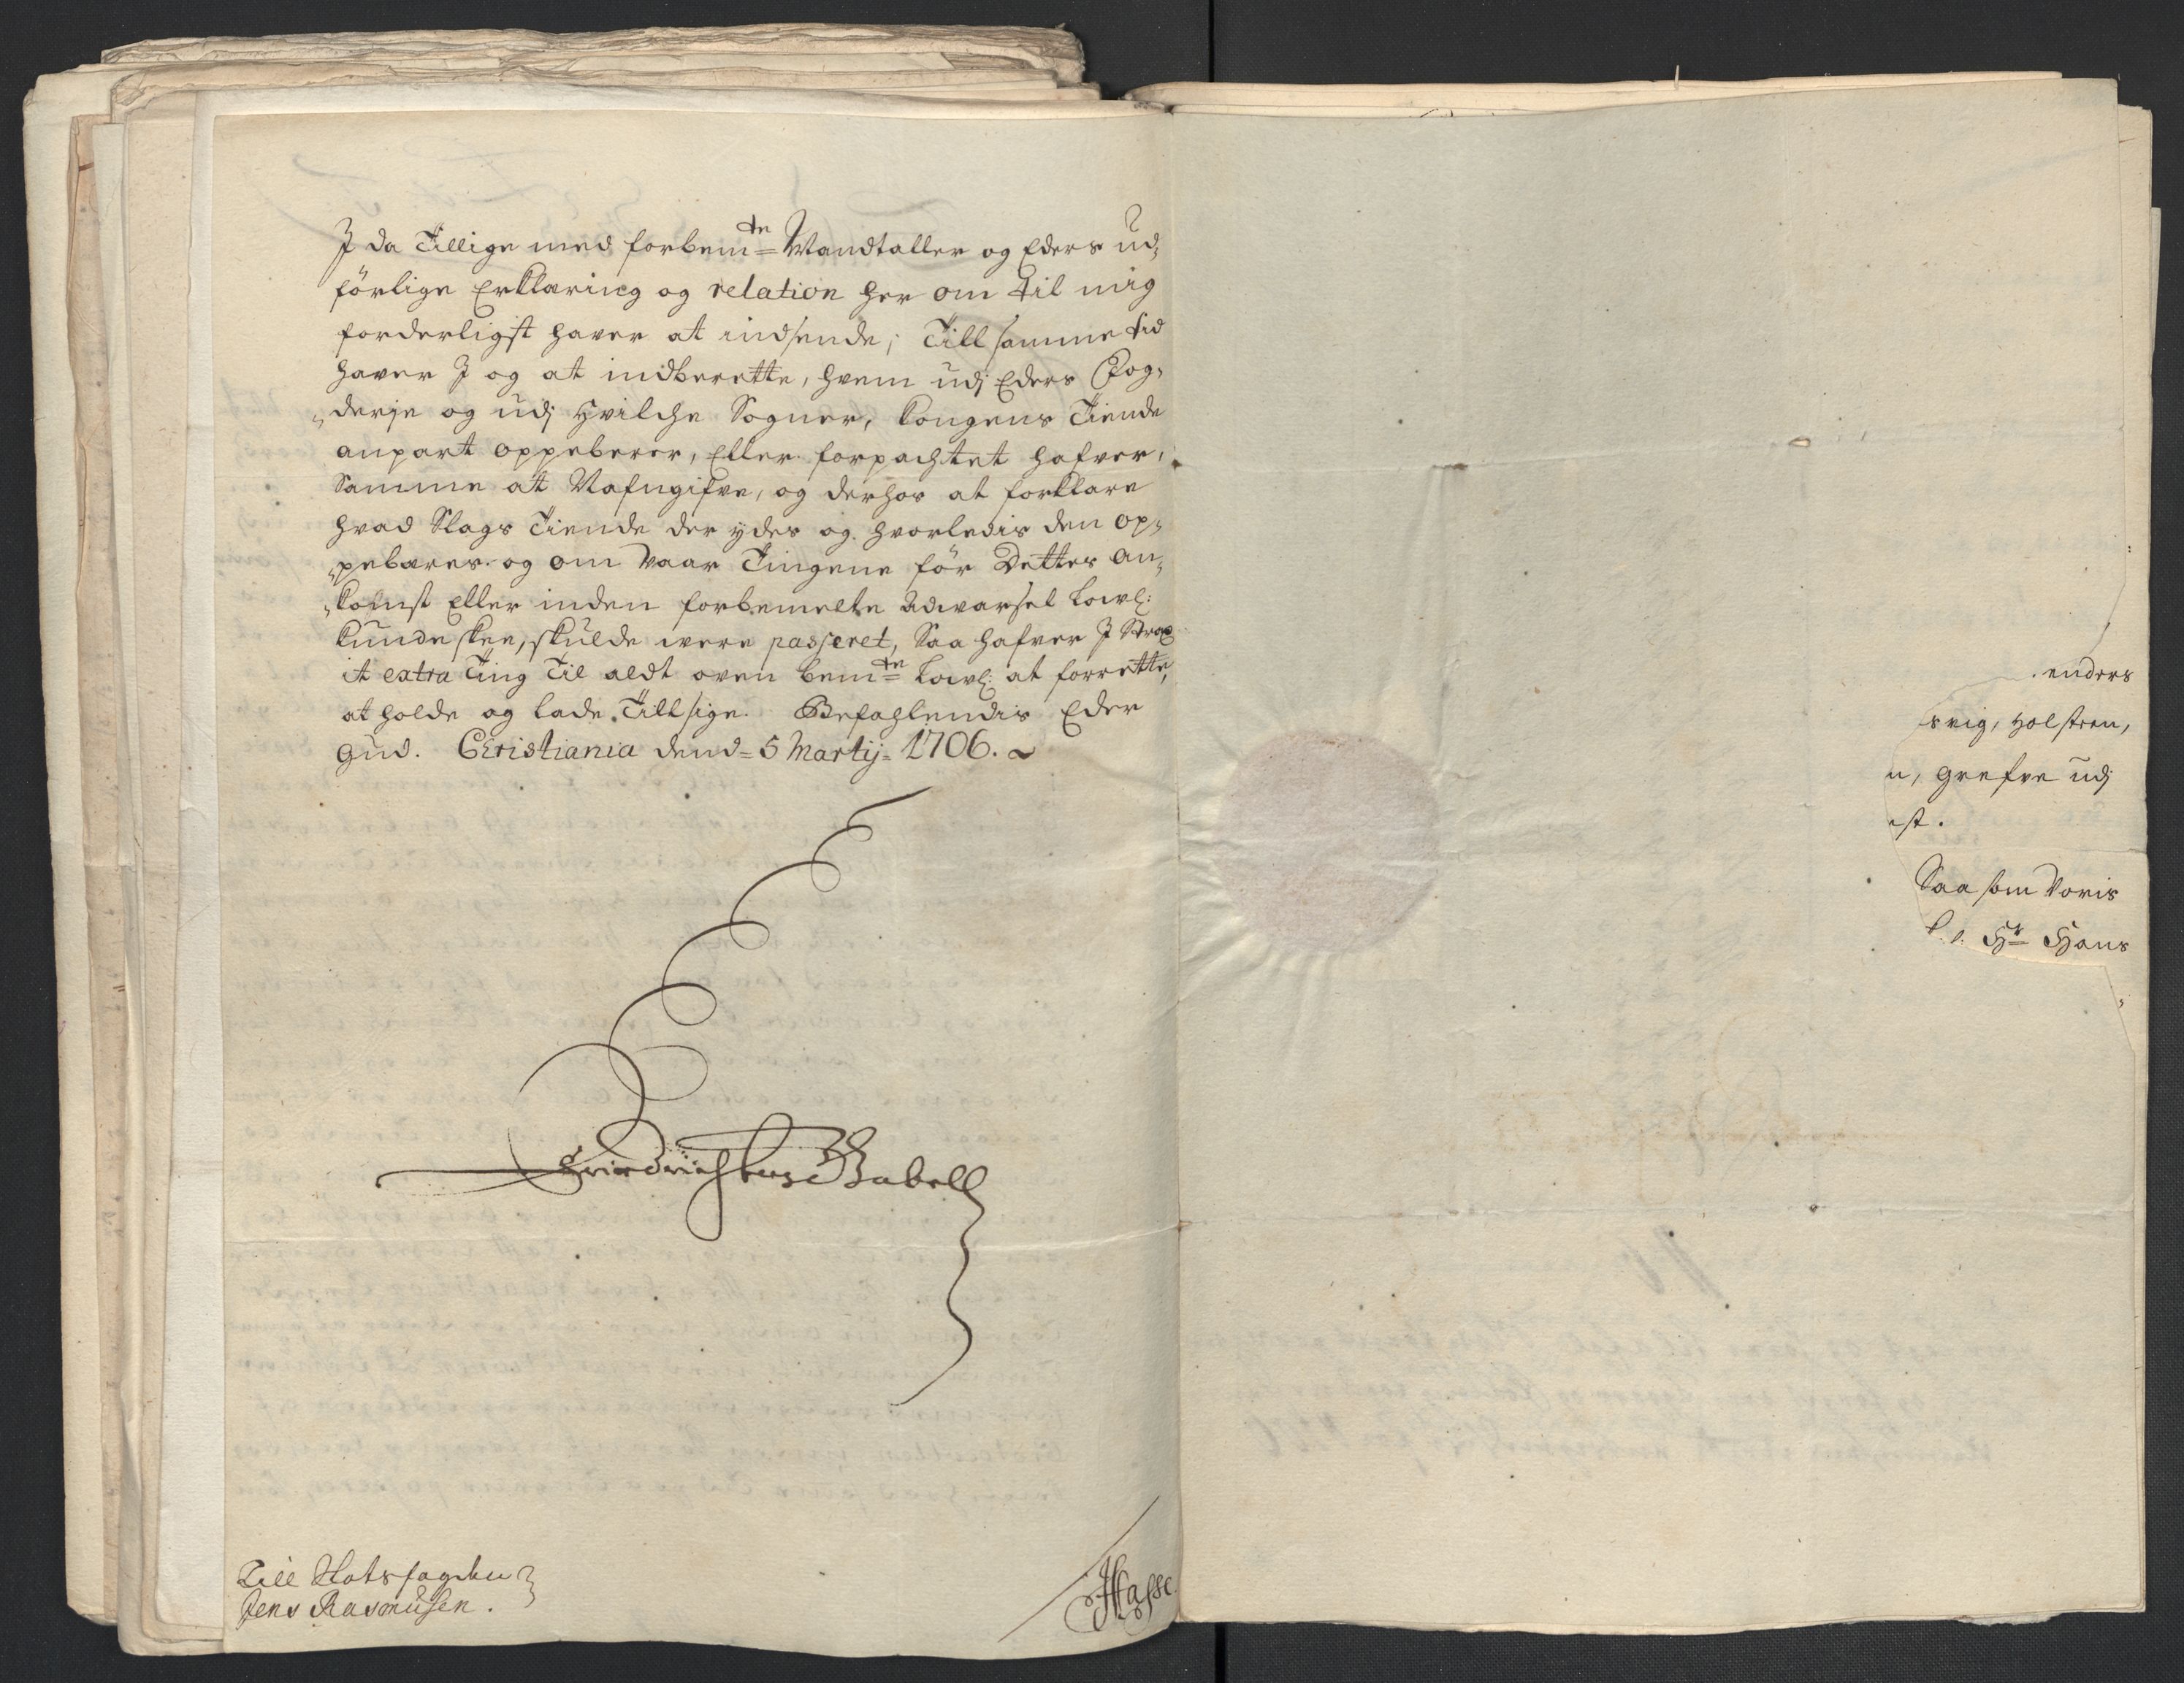 I da Tillige med forbem:te Mandtaller og Eders ud-
förlige Erklæring og relation her om til mig
forderligst haver at indsende; Till samme tid
haver I og at indberette, hvem udj Eders Fog-
derje og udj hvilche Sogner, kongens Tiende
anpart oppeberer, Eller forpachtet hafver,
Samme at Nafngifve, og derhos at forklare
hvad Slags Tiende der ydes og hvorledis den op-
pebæres og om Vaar Tingene för Dettes an-
komst Eller inden forbemelte Advarsel lovl:
kunde skee, skulde were passeret, Saa hafver I Strax
it extra Ting Til aldt oven bem:te lovl: at forrette,
at holde og lade Tillsige. Befahlendis Eder
Gud. Christiania dend 5 Martij 1706.
Friedrich Gabell
Till
Jens Rasmusen.
Hasse
enders
svig, Holsten,
n, Grefve udj
st.
Saa som Voris
Hr Hans